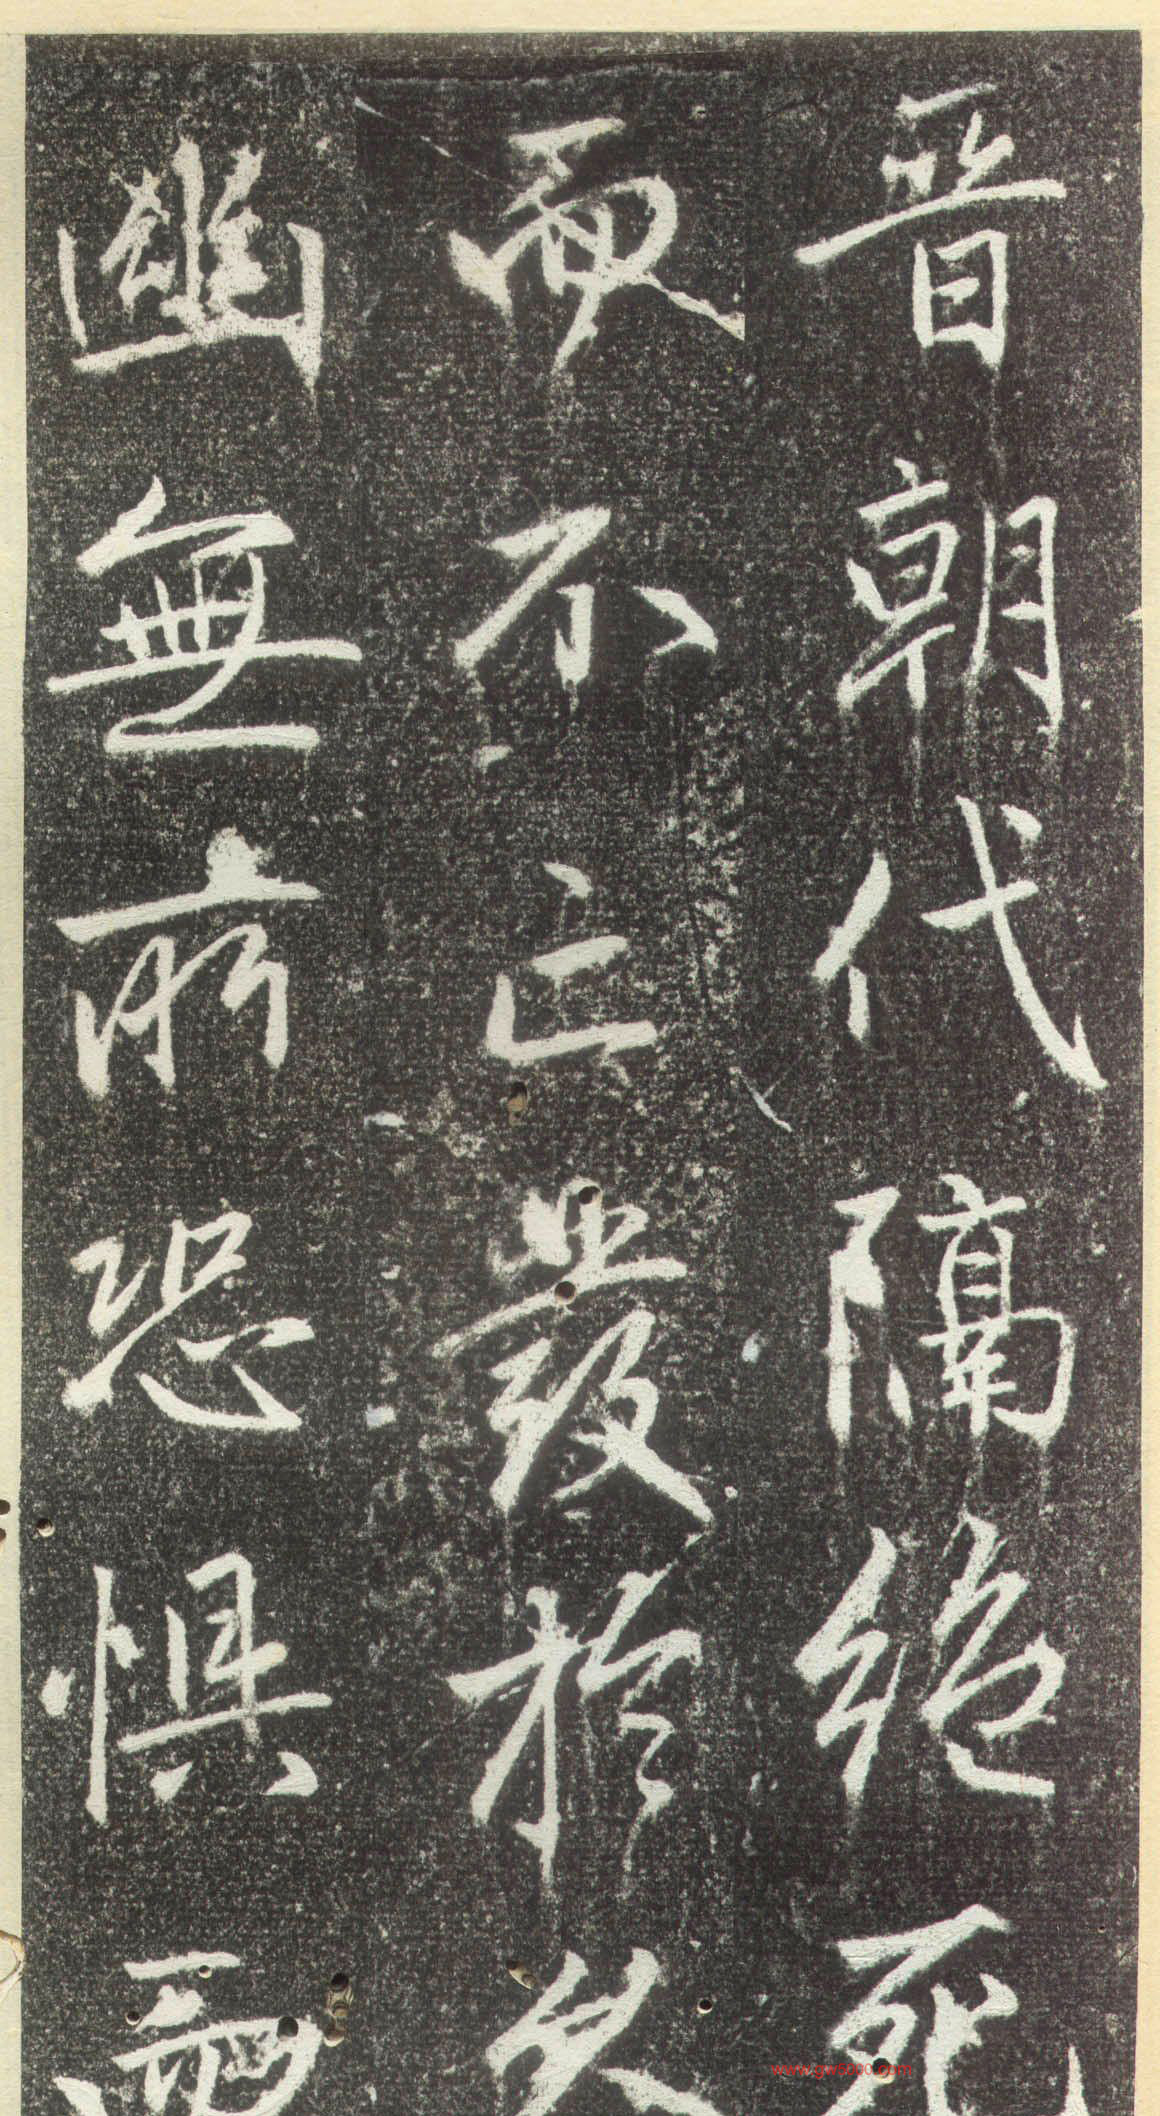 晉朝代隔絕死
而不亡發於久
幽無所恐懼而
www.gw5000.com